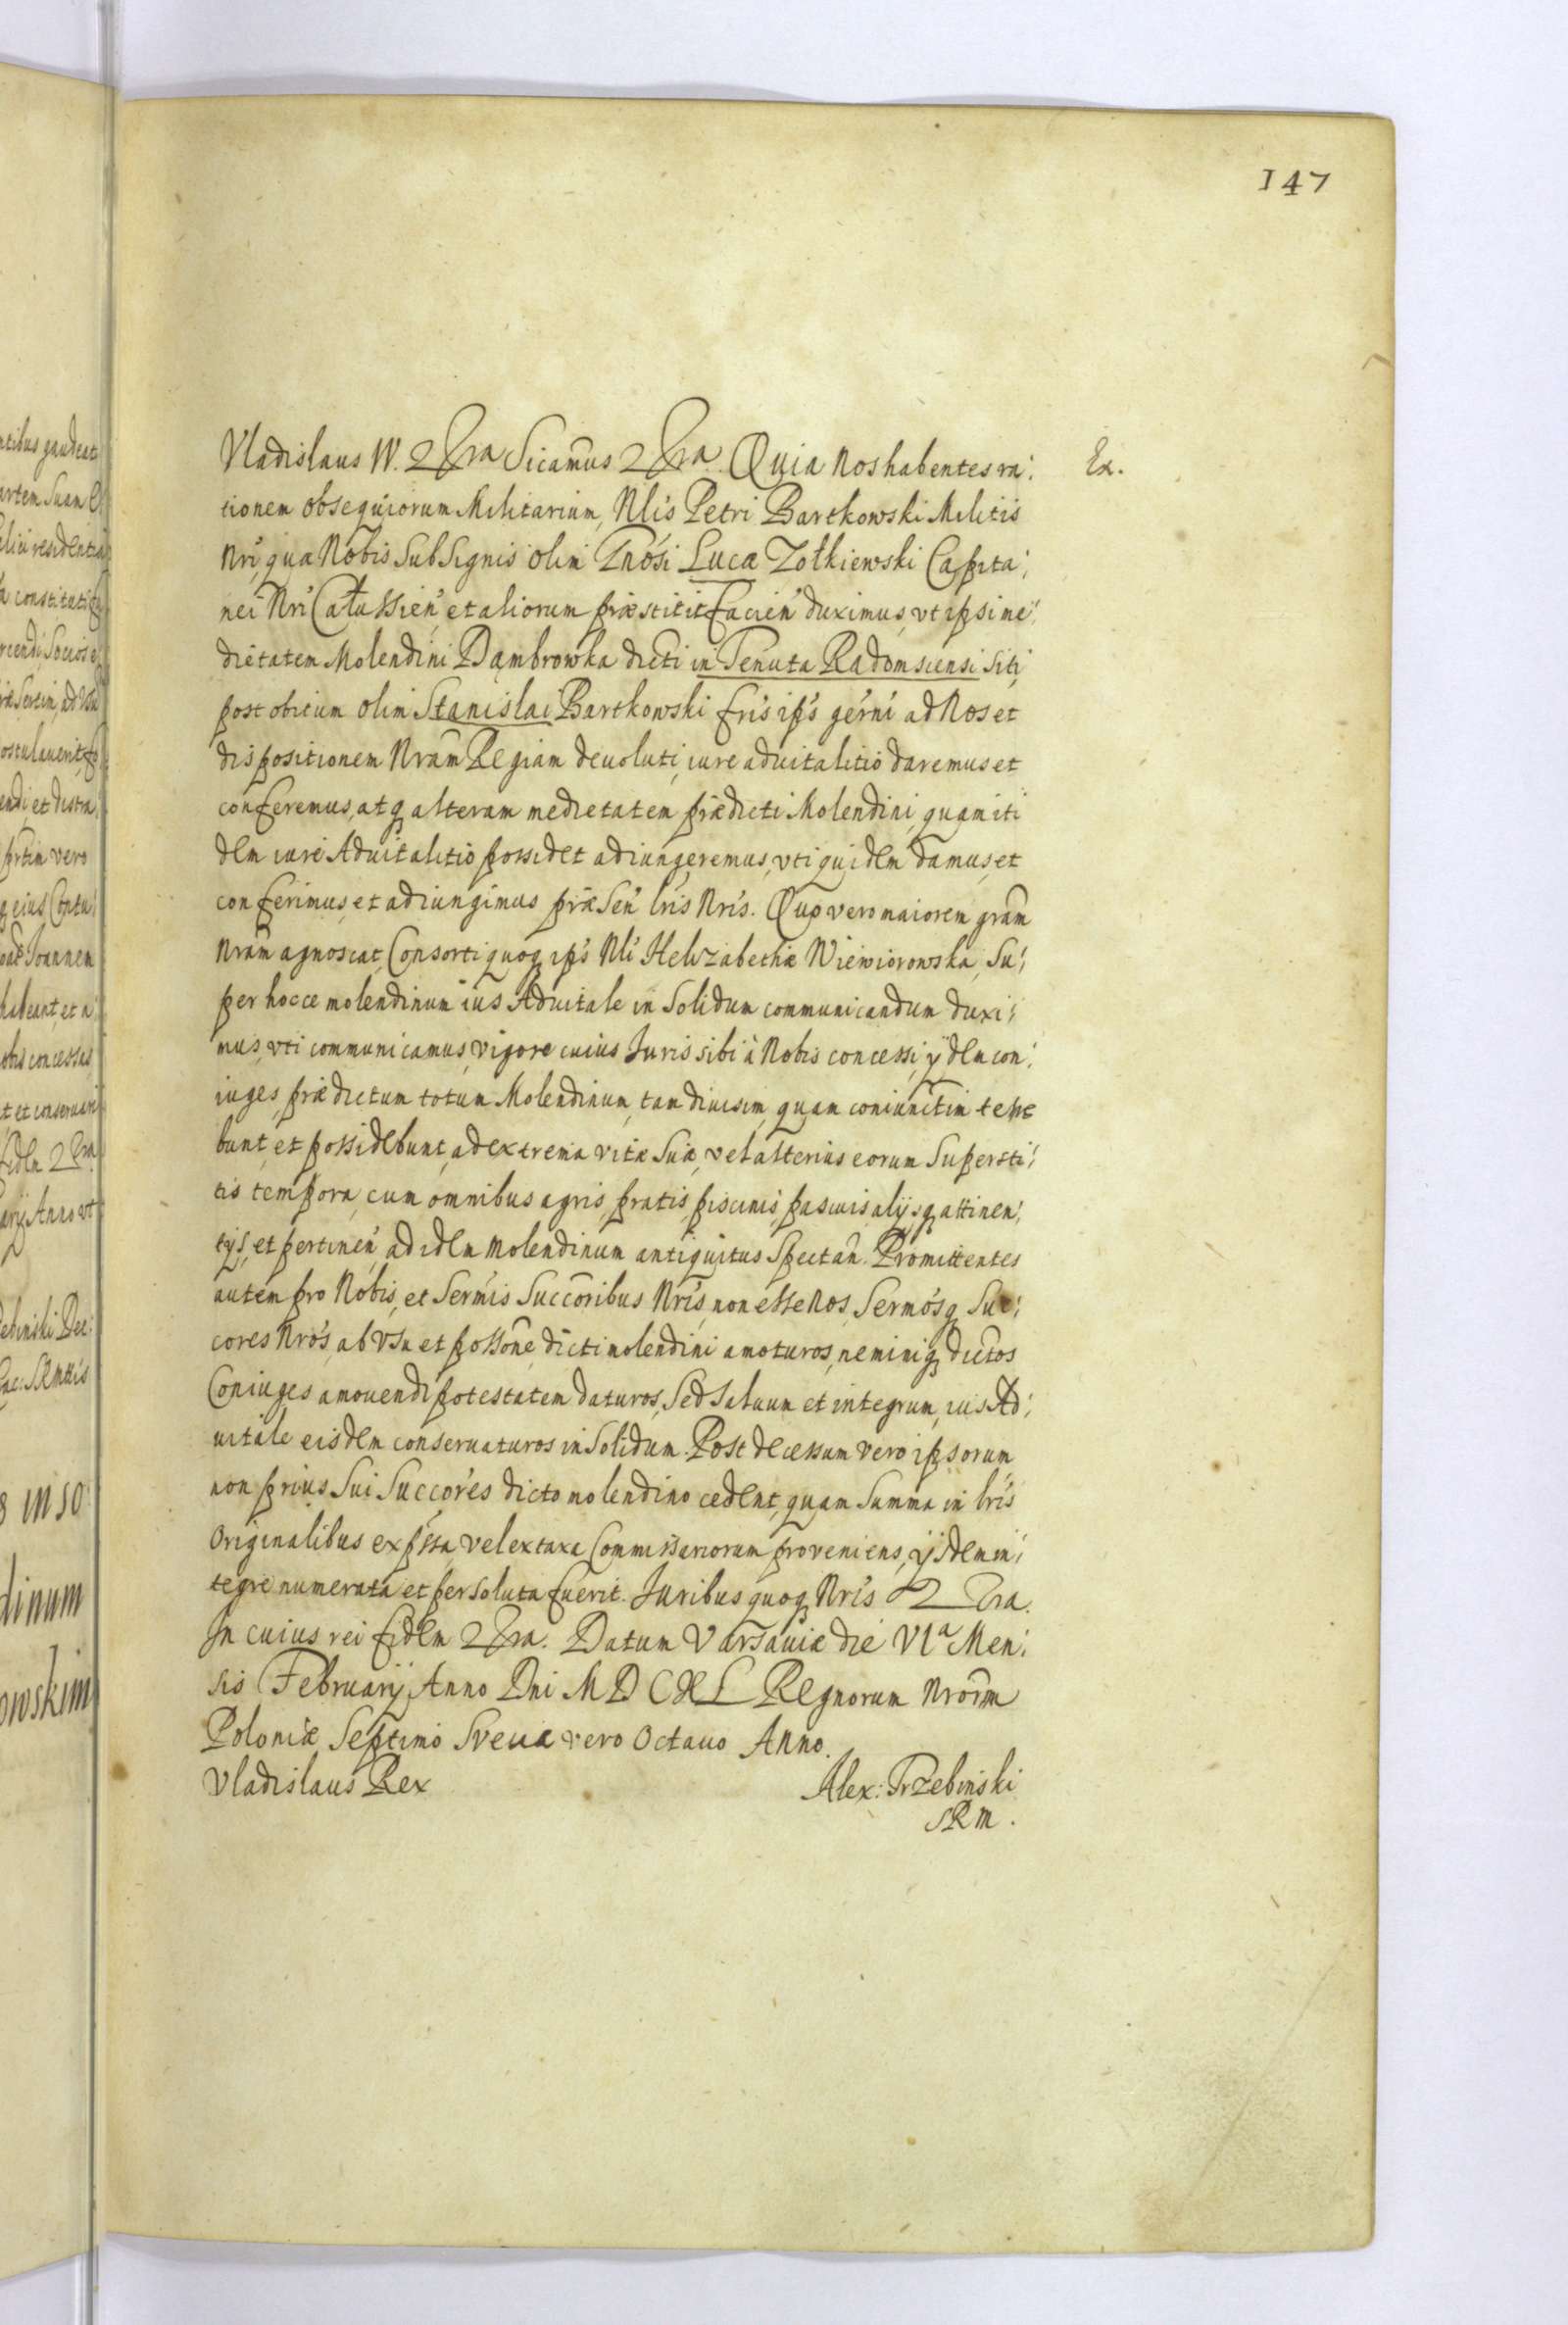 147
Vladislaus IV. &ra Sicamus &ra. Quia Nos habentes ra: Ex.
tionem obsequiorum Militarium, Nlis Petri Bartkowski Militis
Nri, qua Nobis sub Signis olim Gnosi Lucæ Zołkiewski Capita:
nei Nri Całussien, et aliorum præstitit faciend duximus, vt ipsi me:
dietatem Molendini Dąmbrowka dicti in Tenuta Radomscensi siti,
post obitum olim Stanislai Bartkowski fris ips germ ad Nos et
dispositionem Nram Regiam deuoluti, iure aduitalitio daremus et
conferemus, atq alteram medietatem prædicti Molendini, quam iti
dem iure Aduitalitio possidet adiungeremus, vti quidem damus, et
conferimus, et adiungimus præsen lris Nris. Quo vero maiorem gram
Nram agnoscat, Consorti quoq ips Nli Helizabethæ Wiewiorowska, Su:
per hocce molendinum ius Aduitale in solidum communicandum duxi:
mus, vti communicamus, vigore cuius Juris sibi à Nobis concessi, ijdem con:
iuges, prædictum totum Molendinum, tam diuisim, quam coniunctim tene
bunt, et possidebunt, ad extrema vitæ suæ, vel alterius eorum Supersti:
tis tempora, cum omnibus agris, pratis, piscinis, pascuis, alijsq attinen:
tijs, et pertinen, ad idem Molendinum antiquitus spectan. Promittentes
autem pro Nobis, et Sermis Succoribus Nris, non esse Nos, Sermosq Suc:
cores Nros, ab vsu et possone dicti molendini amoturos, neminiq dictos
Coniuges amouendi potestatem daturos, Sed saluum et integrum, ius Ad:
uitale eisdem conseruaturos in solidum. Post decessum vero ipsorum
non prius Sui Succores dicto molendino cedent, quam Summa in lris
Originalibus expssa, vel ex taxa Commissariorum proveniens, ijsdem in:
tegre numerata et persoluta fuerit. Juribus quoq Nris &ra.
In cuius rei fidem &ra. Datum Varsauiæ die VIa Men:
sis Februarij, Anno Dni MDCXL Regnorum Nrorum
Poloniæ Septimo Sveciæ vero Octauo Anno.
Vladislaus Rex Alex: Trzebinski
SRM.